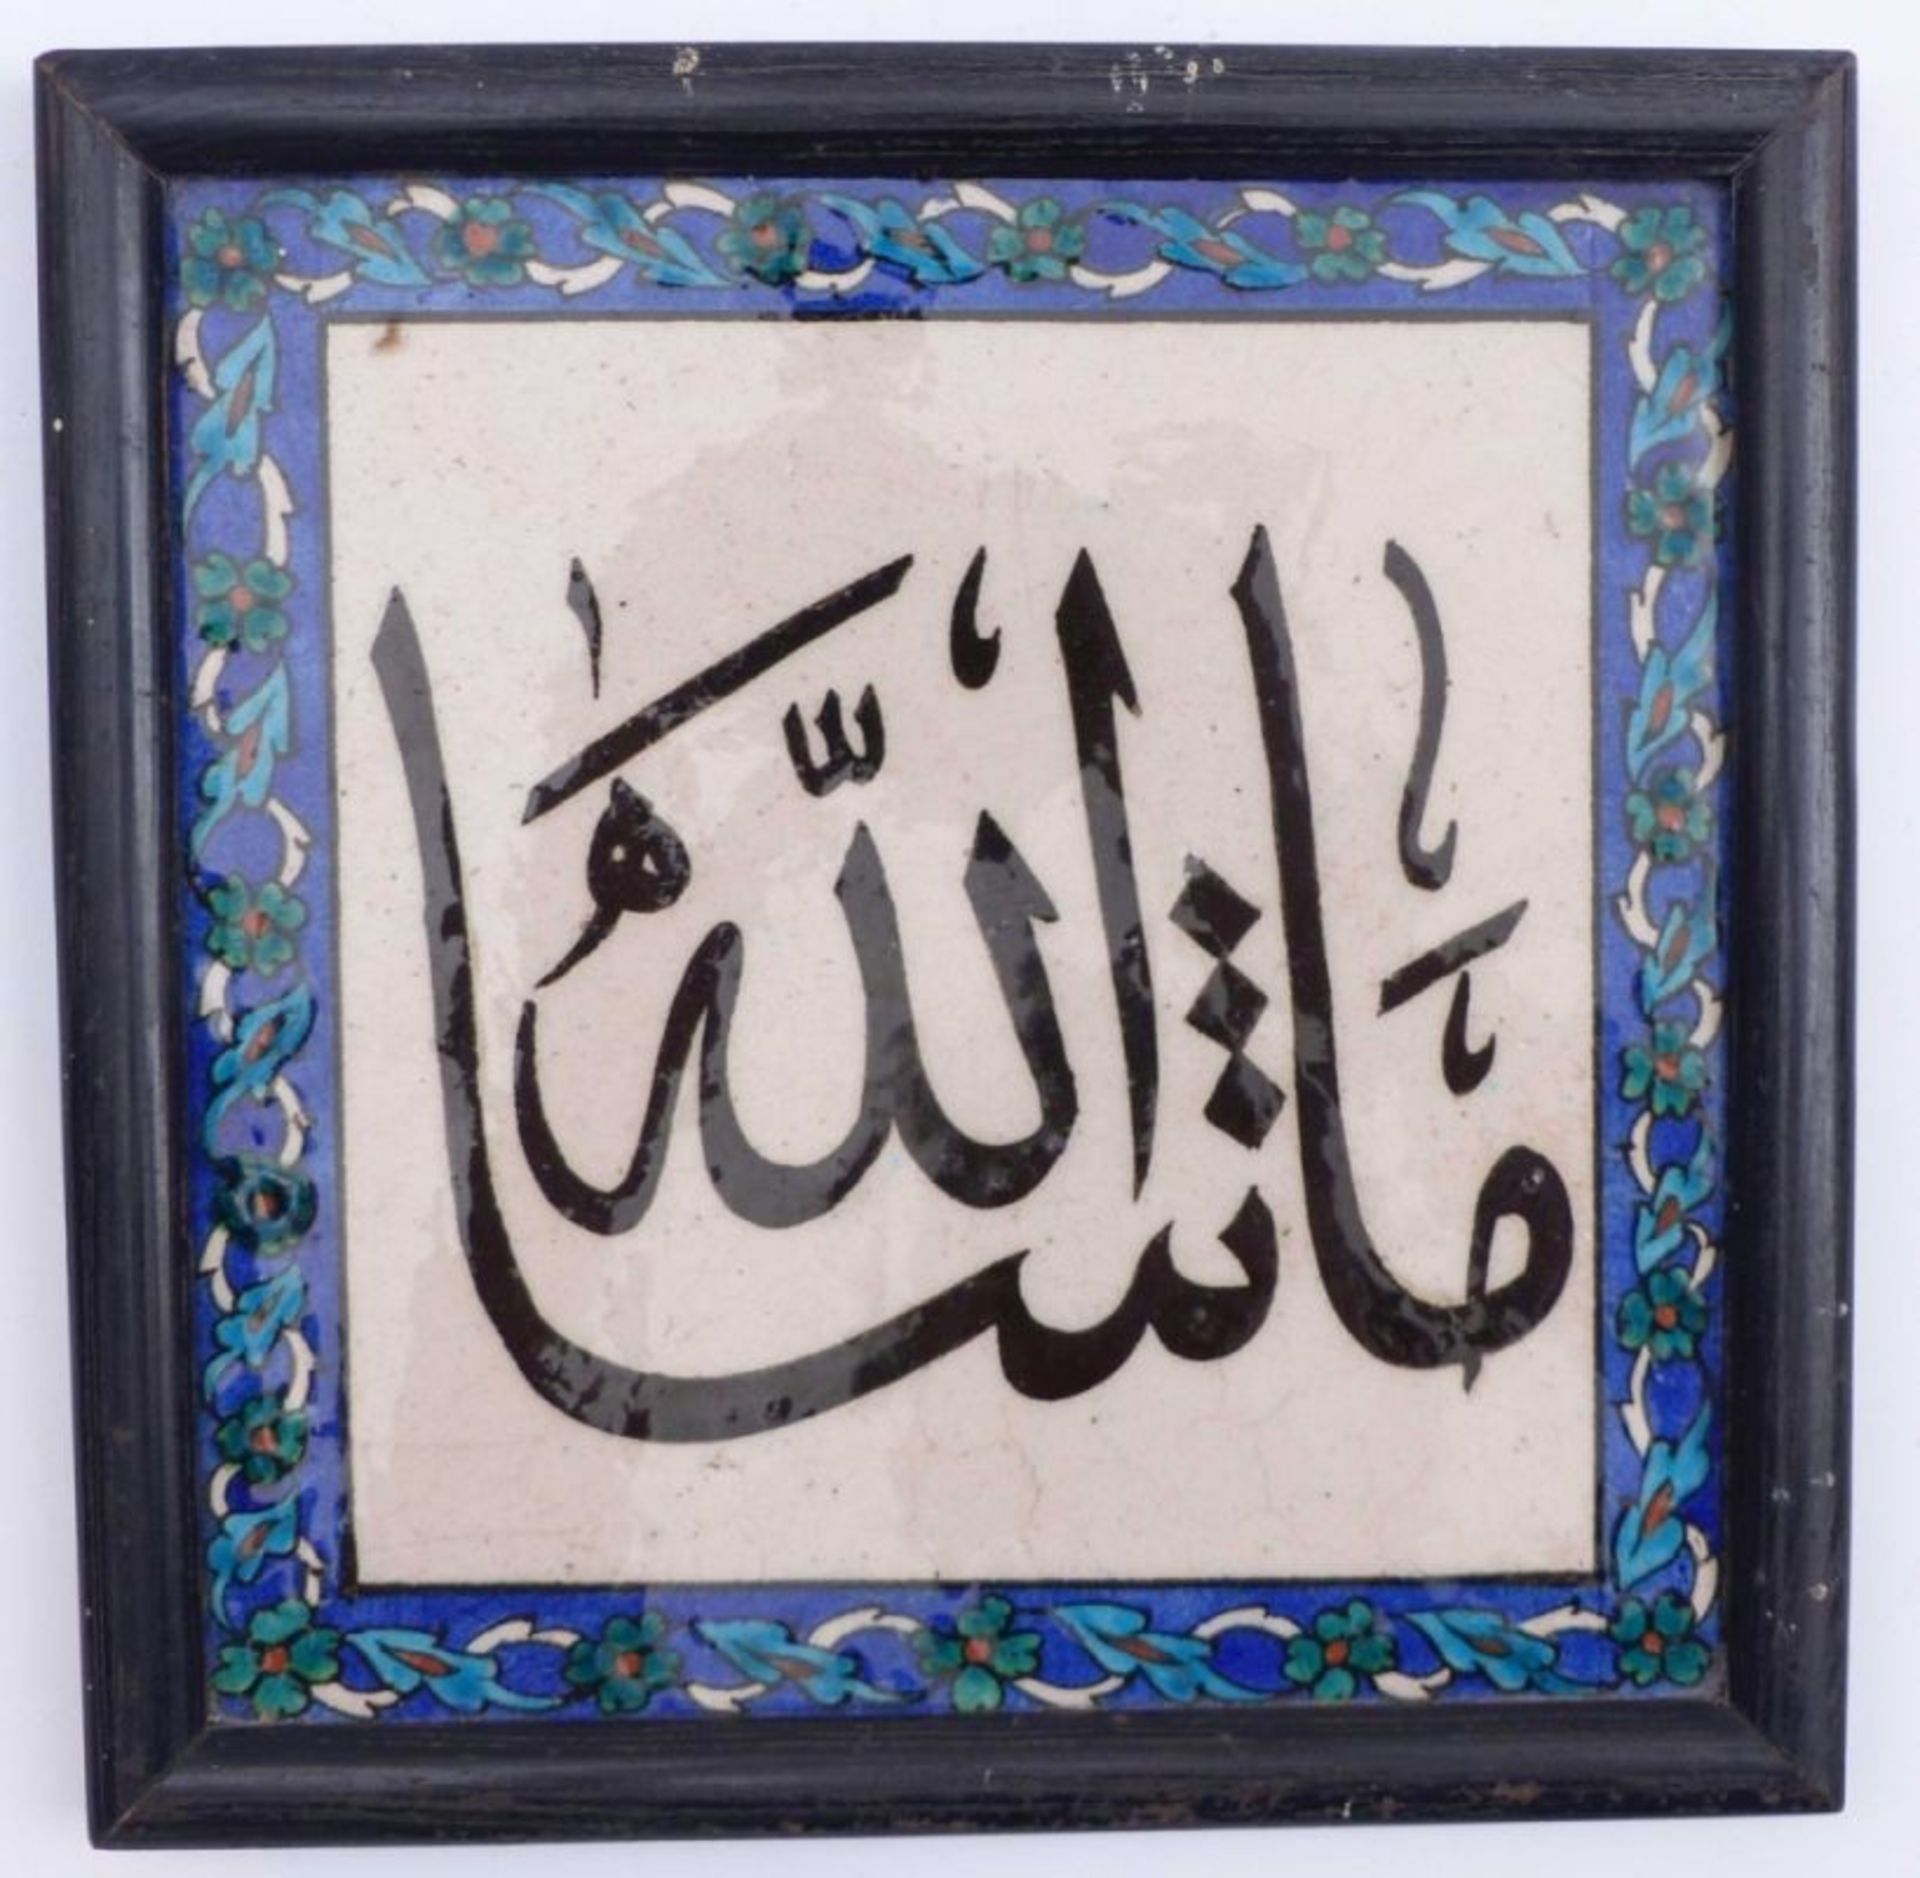 ما شاء الله